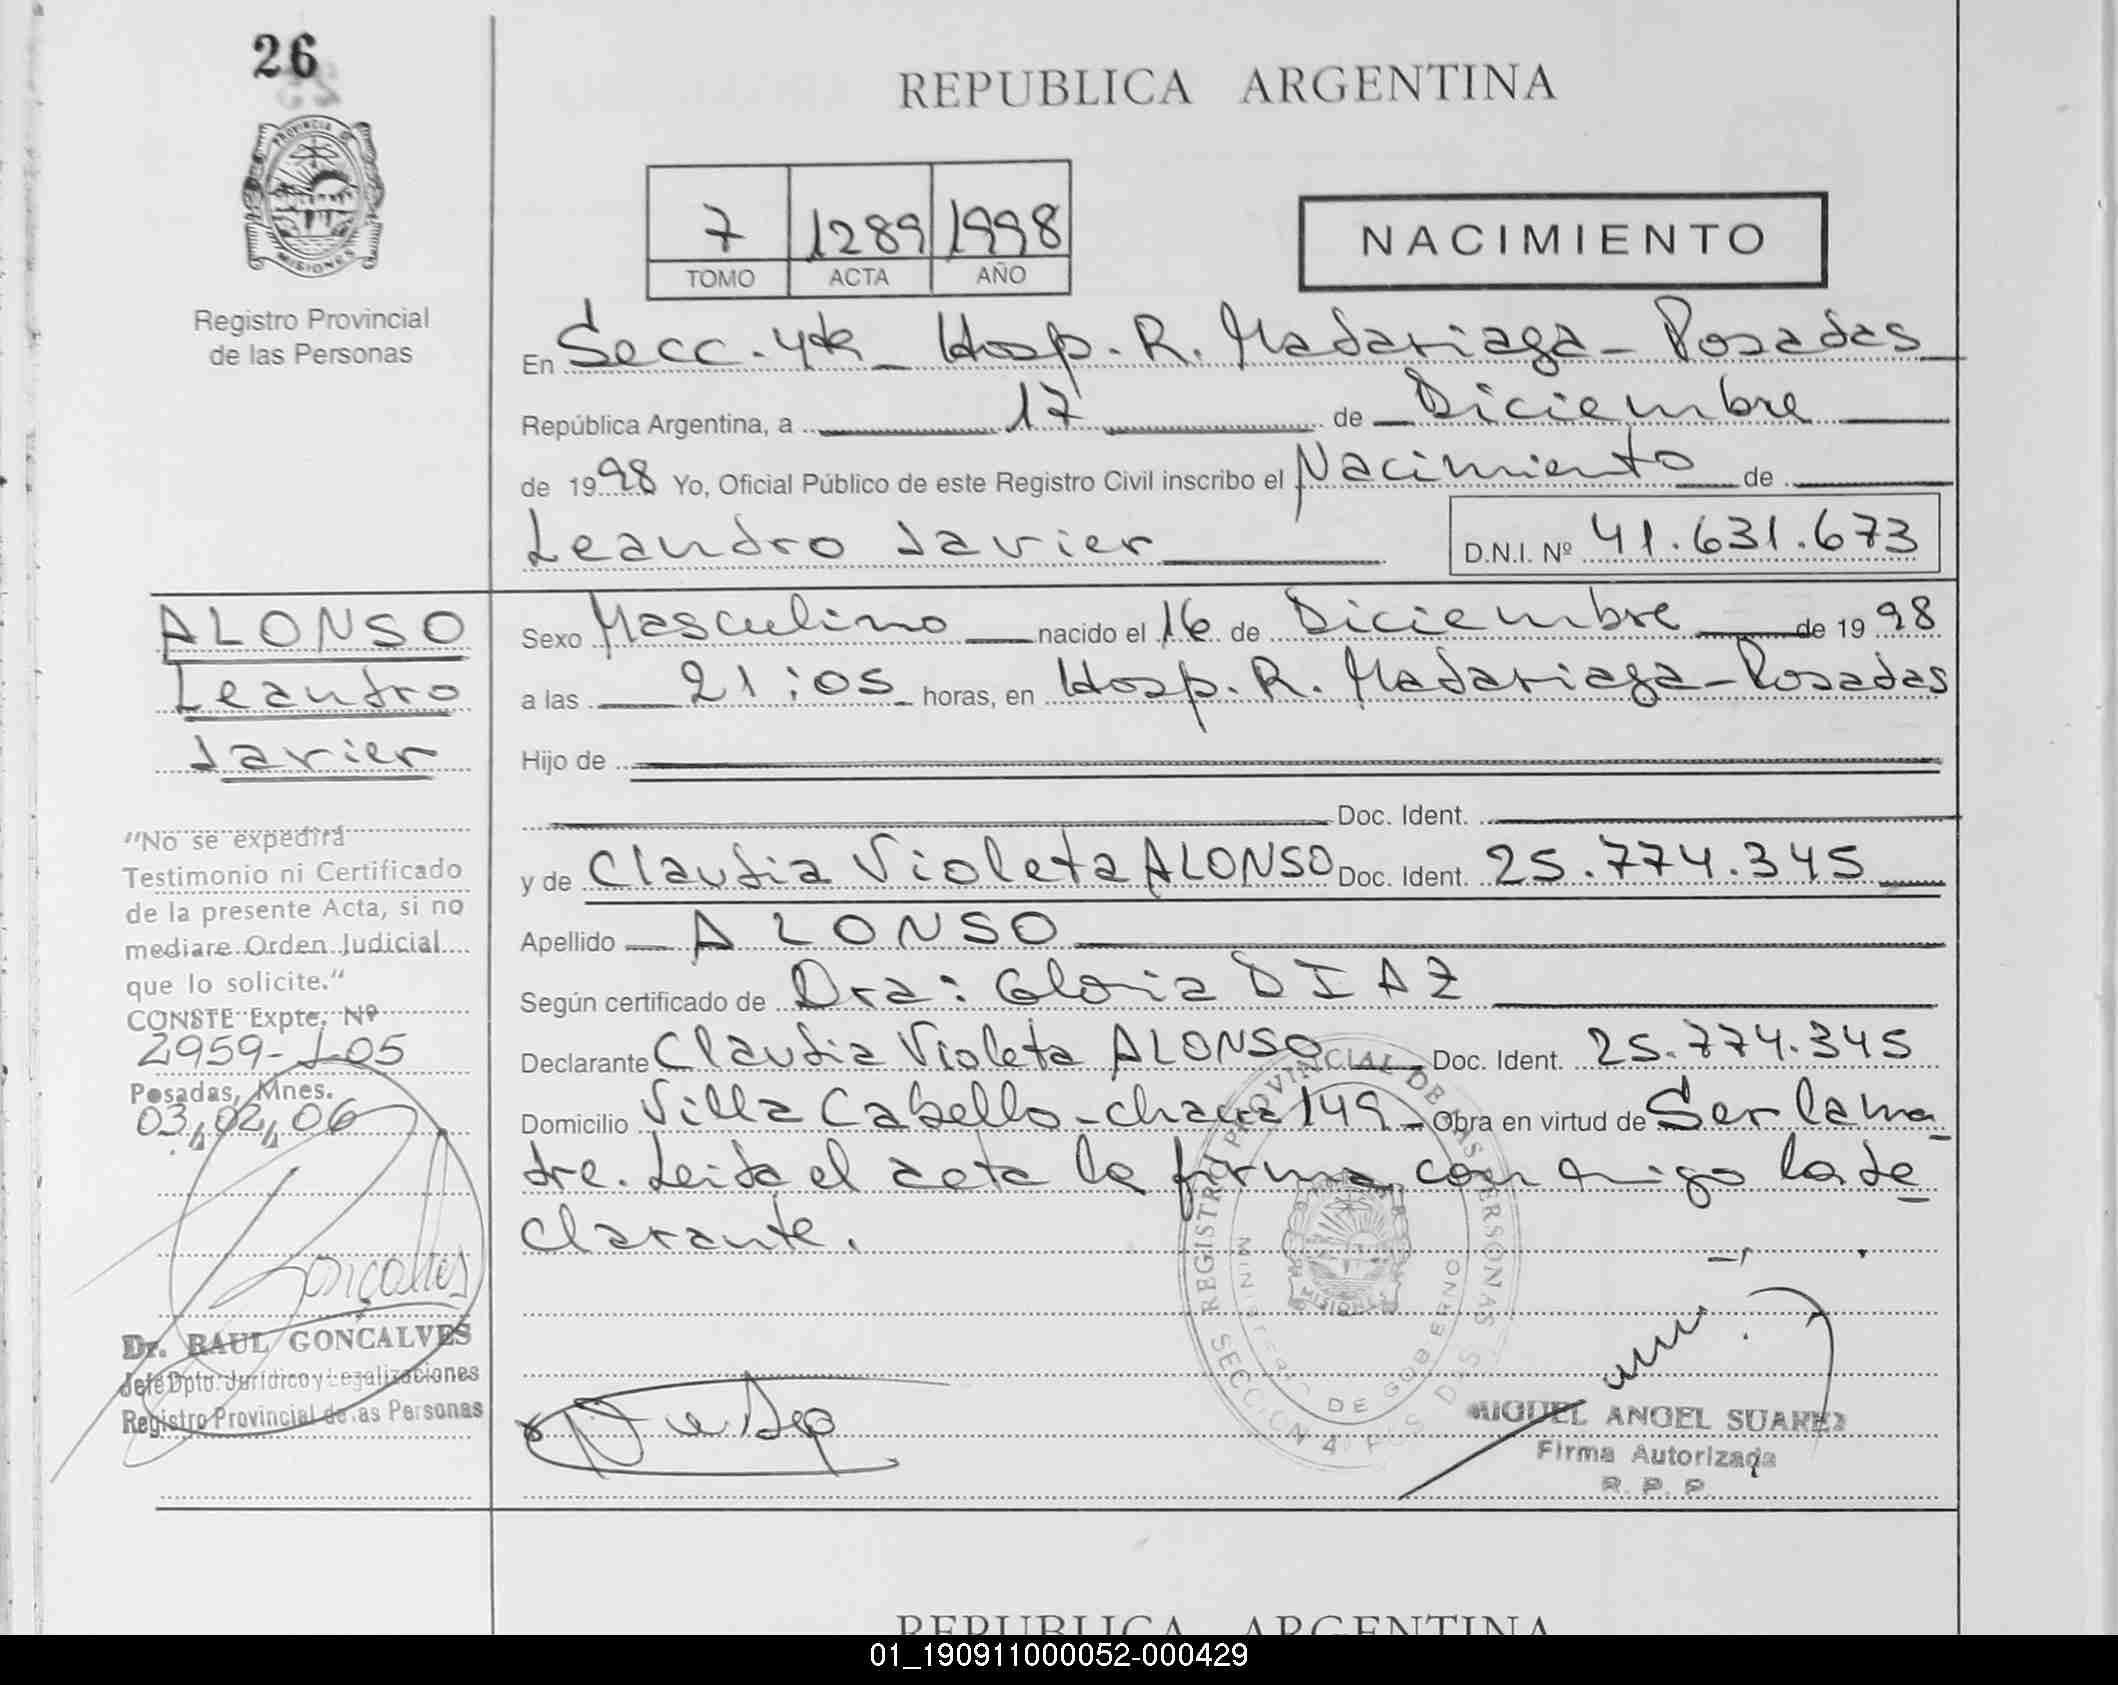 26
REPUBLICA ARGENTINA
PROVINCIA DE
MISIONES
Registro Provincial
de las Personas
7 1289 1998
TOMO ACTA AÑO
NACIMIENTO
En Secc. 4ta Hosp. R. Madariaga - Posadas
República Argentina, a 17 de Diciembre
de 1998 Yo, Oficial Público de este Registro Civil inscribo el Nacimiento de
Leandro Javier D.N.I. Nº 41.631.673
ALONSO
Leandro
Javier
Sexo Masculino nacido el 16 de Diciembre de 1998
a las 21:05 horas, en Hosp. R. Madariaga - Posadas
Hijo de
Doc. Ident.
y de Claudia Violeta ALONSO Doc. Ident. 25.774.345
Apellido ALONSO
Según certificado de Dra: Gloria DIAZ
Declarante Claudia Violeta ALONSO Doc. Ident. 25.774.345
Domicilio Villa Cabello - chacra 149 - Obra en virtud de Ser la ma-
dre. Leida el acta la firma conmigo la de
clarante.
"No se expedirá
Testimonio ni Certificado
de la presente Acta, si no
mediare Orden Judicial
que lo solicite."
CONSTE Expte. Nº
2959-J-05
Posadas, Mnes.
03,02,06
Gonçalves
Dr. RAUL GONÇALVES
Jefe Dpto. Jurídico y Legalizaciones
Registro Provincial de las Personas
REGISTRO PROVINCIAL DE LAS PERSONAS
MINISTERIO DE GOBIERNO
SECCION 4ª POSADAS
MIGUEL ANGEL SUAREZ
Firma Autorizada
R. P. P.
REPUBLICA ARGENTINA
01_190911000052-000429